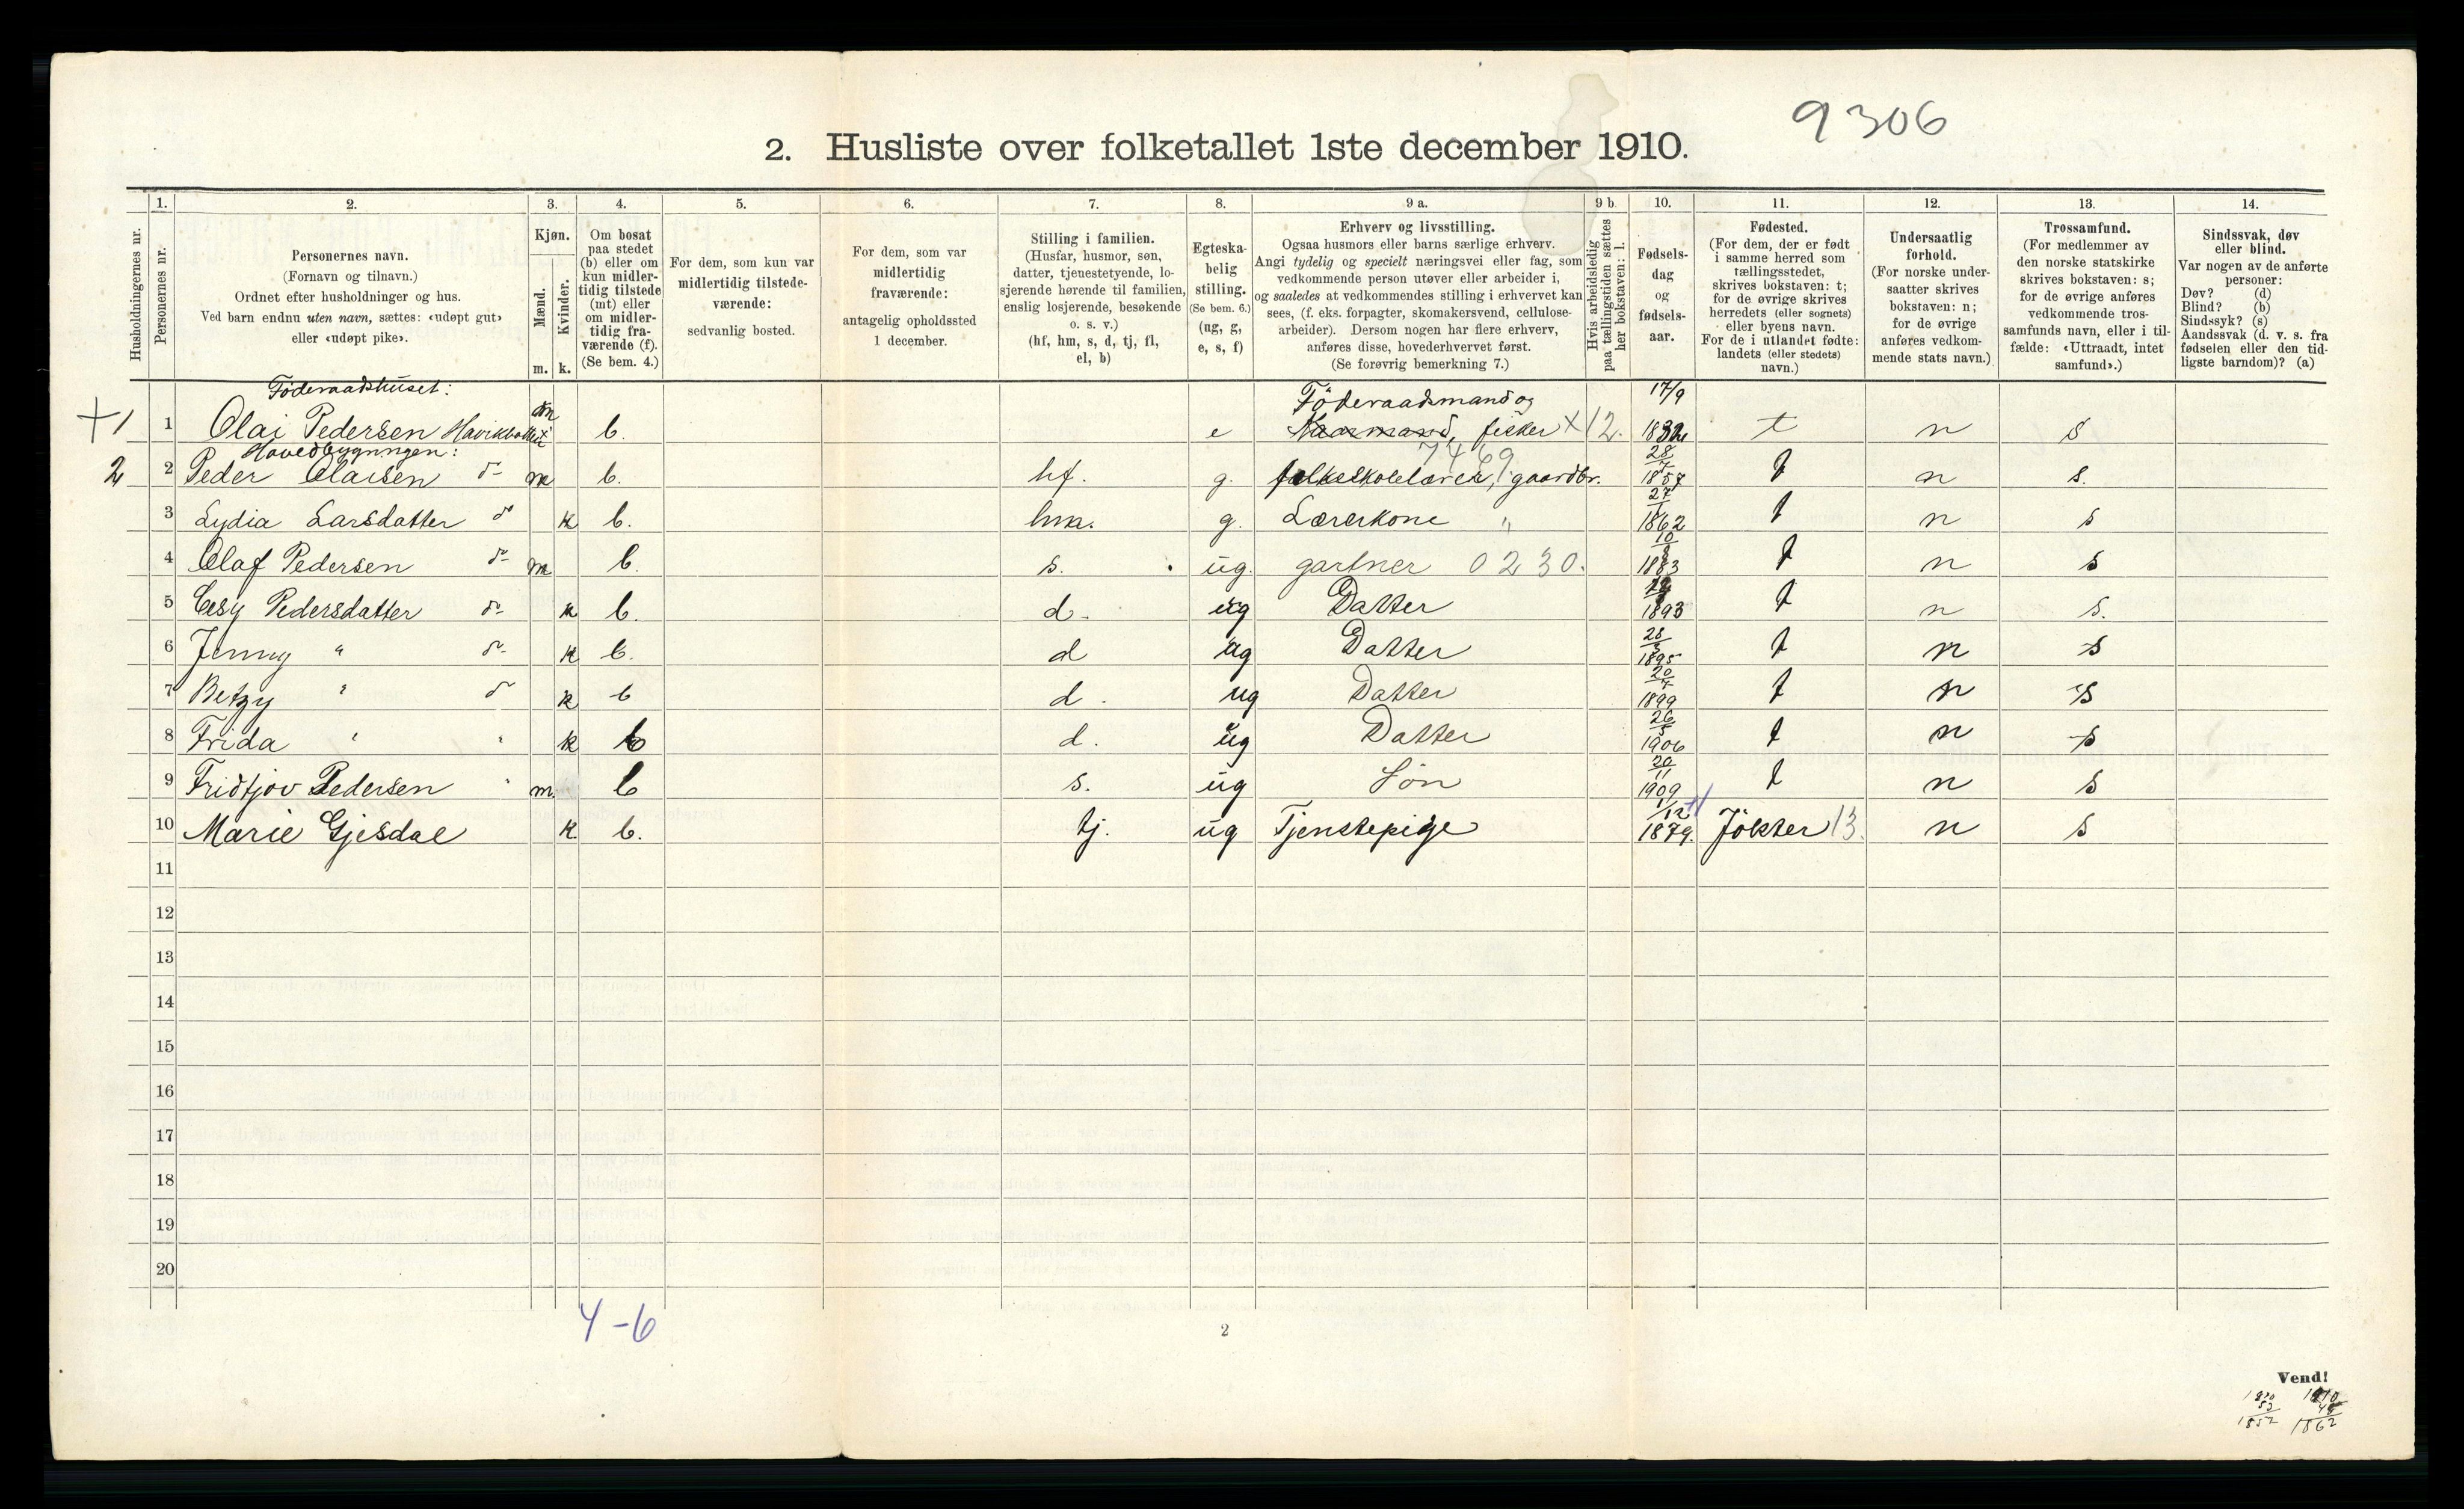 9306
2. Husliste over folketallet 1ste december 1910.
Husholdningernes nr.
1.
Personernes nr.
2.
Personernes navn.
(Fornavn og tilnavn.)
Ordnet efter husholdninger og hus.
Ved barn endnu uten navn, sættes: «udøpt gut»
eller «udøpt pike».
3.
Kjøn.
Mænd.
Kvinder.
m. k.
4.
Om bosat
paa stedet
(b) eller om
kun midler-
tidig tilstede
(mt) eller
om midler-
tidig fra-
værende (f).
(Se bem. 4.)
5.
For dem, som kun var
midlertidig tilstede-
værende:
sedvanlig bosted.
6.
For dem, som var
midlertidig
fraværende:
antagelig opholdssted
1 december.
7.
Stilling i familien.
(Husfar, husmor, søn,
datter, tjenestetyende, lo-
sjerende hørende til familien,
enslig losjerende, besøkende
o. s. v.)
(hf, hm, s, d, tj, fl,
el, b)
8.
Egteska-
belig
stilling.
(Se bem. 6.)
(ug, g,
e, s, f)
9 a.
Erhverv og livsstilling.
Ogsaa husmors eller barns særlige erhverv.
Angi tydelig og specielt næringsvei eller fag, som
vedkommende person utøver eller arbeider i,
og saaledes at vedkommendes stilling i erhvervet kan
sees, (f. eks. forpagter, skomakersvend, cellulose-
arbeider). Dersom nogen har flere erhverv,
anføres disse, hovederhvervet først.
(Se forøvrig bemerkning 7.)
9 b.
Hvis arbeidsledig
paa tællingstiden sættes
her bokstaven: l.
10.
Fødsels-
dag
og
fødsels-
aar.
11.
Fødested.
(For dem, der er født
i samme herred som
tællingsstedet,
skrives bokstaven: t;
for de øvrige skrives
herredets (eller sognets)
eller byens navn.
For de i utlandet fødte:
landets (eller stedets)
navn.)
12.
Undersaatlig
forhold.
(For norske under-
saatter skrives
bokstaven: n;
for de øvrige
anføres vedkom-
mende stats navn.)
13.
Trossamfund.
(For medlemmer av
den norske statskirke
skrives bokstaven: s;
for de øvrige anføres
vedkommende tros-
samfunds navn, eller i til-
fælde: «Uttraadt, intet
samfund».)
14.
Sindssvak, døv
eller blind.
Var nogen av de anførte
personer:
Døv? (d)
Blind? (b)
Sindssyk? (s)
Aandssvak (d. v. s. fra
fødselen eller den tid-
ligste barndom)? (a)
Föderaadshuset: Föderaadsmand og 17/9
+1 1 Olai Pedersen b. e fisker x 12. 1832 t n s
Hovedbygningen: 7469 28/7
2 2 Peder Olaisen do m b. hf. g. folkeskolelærer, gaardbr. 1857 t n s.
27/1
3 Lydia Larsdatter do k b. hm. g. Lærerkone " 1862 t n s
10/8
4 Olaf Pedersen do m b. s. ug. gartner 0230. 1883 t n s
5 Cesy Pedersdatter do k b. d. ug Datter 1893 t n s.
28/3
6 Jenny " do k b. d ug Datter 1895 t n s
20/7
7 Betzy " do k b d. ug Datter 1899 t n s
26/5
8 Frida " " k b d. ug Datter 1906 t n s
20/11
9 Fridtjov Pedersen " m. b s. ug Søn 1909 t n s
1/12
10 Marie Gjesdal k b. tj. ug Tjenstepige 1879. Jökster 13. n s
11
12
13
14
15
16
17
18
19
20
4-6
2
Vend!
1910
1852 1862